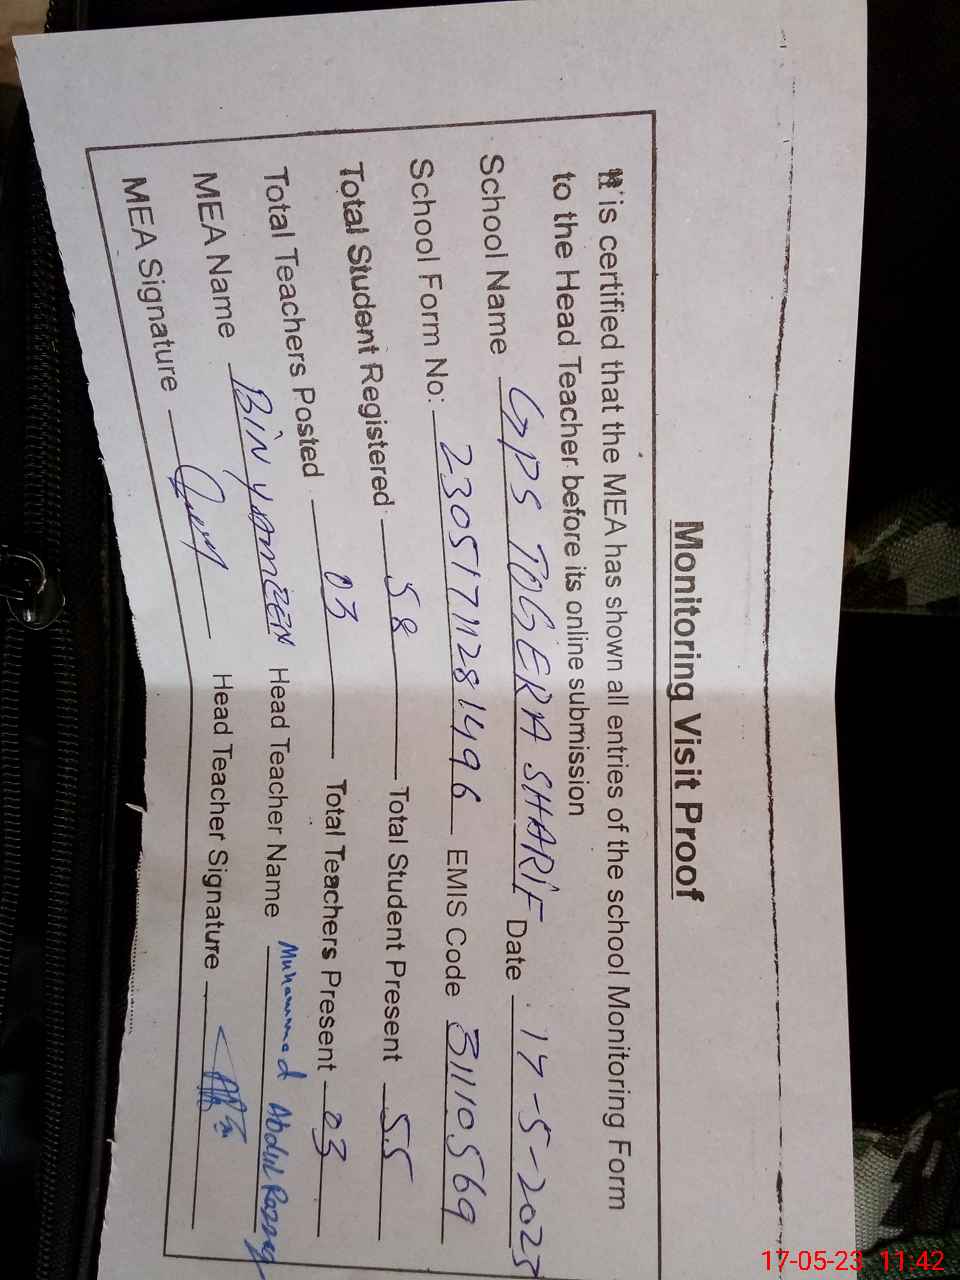 Monitoring Visit Proof
It is certified that the MEA has shown all entries of the school Monitoring Form
to the Head Teacher before its online submission
School Name GPS TOGERA SHARIF Date 17-5-2023
School Form No: 23051711281496 EMIS Code 31110569
Total Student Registered 58 Total Student Present 55
Total Teachers Posted 03 Total Teachers Present 03
MEA Name BIN YAMEEN Head Teacher Name Muhammad Abdul Razzaq
MEA Signature Head Teacher Signature
17-05-23 11:42